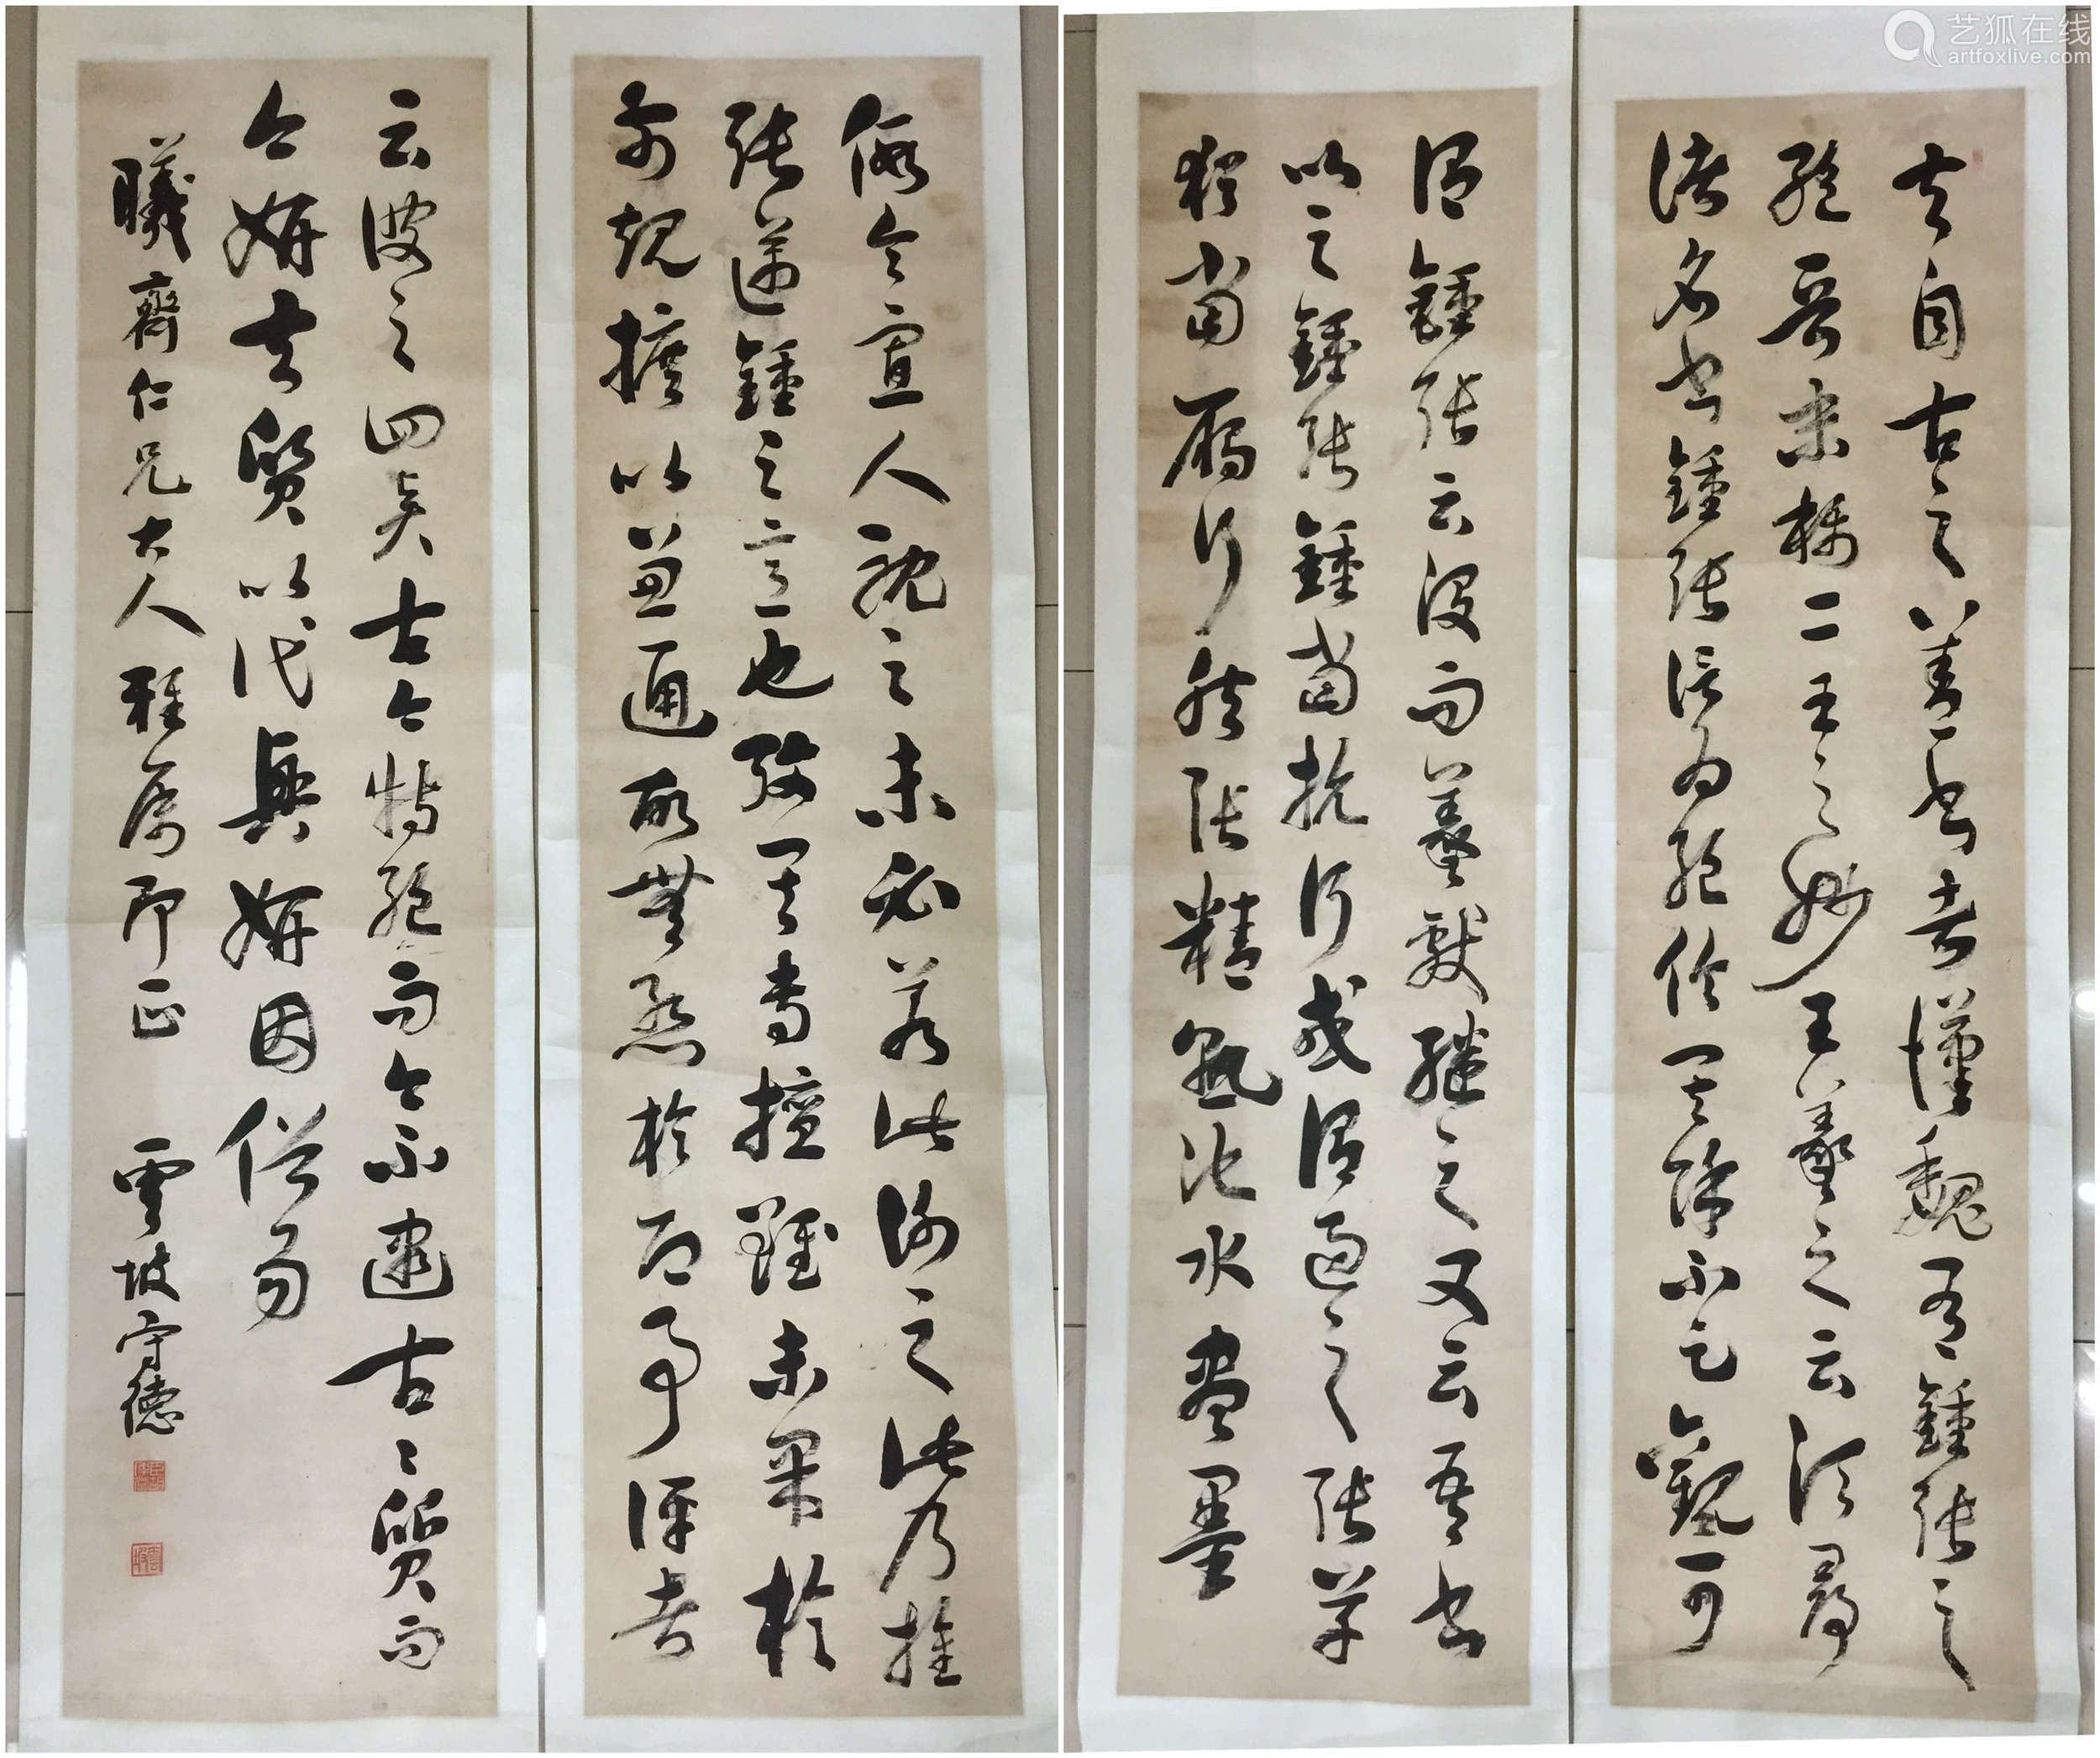 夫自古之善書者漢魏有鍾張之
絕晉末稱二王之妙王羲之云頃尋
諸名書鍾張信為絕倫其餘不足觀可
謂鍾張云沒而羲獻繼之又云吾書
以之鍾張鍾當抗行或謂過之張草
猶當雁行然張精熟池水盡墨
假令寡人耽之未必若此謝之此乃推
張邁鍾之意也攷其專擅雖未果於
前規摭以兼通故無慙於即事評者
云彼之四賢古今特絕而今不逮古古質而
今妍夫質以代興妍因俗易
曦齋仁兄大人雅屬即正
雲坡守德
艺狐在线
artfoxlive.com